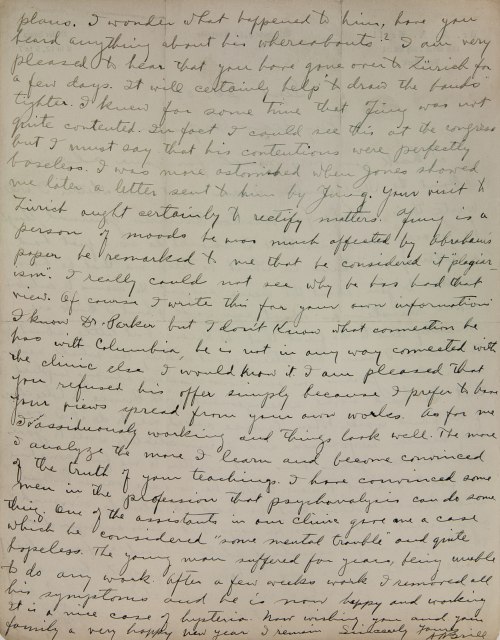 plans. I wonder what happened to him, have you
heard anything about his whereabouts? I am very
pleased to hear that you have gone over to Zürich for
a few days. It will certainly help to draw the bands
tighter. I knew for some time that Jung was not
quite contented. In fact I could see this at the congress
but I must say that his contentions were perfectly
baseless. I was more astonished when Jones showed
me later a letter sent to him by Jung. Your visit to
Zürich ought certainly to rectify matters. Jung is a
person of moods he was much affected by Abrahams
paper he remarked to me that he considered it "plagiar
ism". I really could not see why he has had that
view. Of course I write this for your own information
I know Dr. Parker but I don't know what connection he
has with Columbia, he is not in any way connected with
the clinic else I would know it I am pleased that
you refused his offer simply because I prefer to have
your views spread from your own works. As for me
I'm assiduously working and things look well. The more
I analyze the more I learn and become convinced
of the truth of your teachings. I have convinced some
men in the profession that psychoanalysis can do some
thing. One of the assistants in our clinic gave me a case
which he considered "some mental trouble" and quite
hopeless. The young man suffered for years, being unable
to do any work after a few weeks work I removed all
his symptoms and he is now happy and working
It is a nice case of hysteria. Now wishing you and your
family a very happy new year I remain Sincerely Yours
Brill